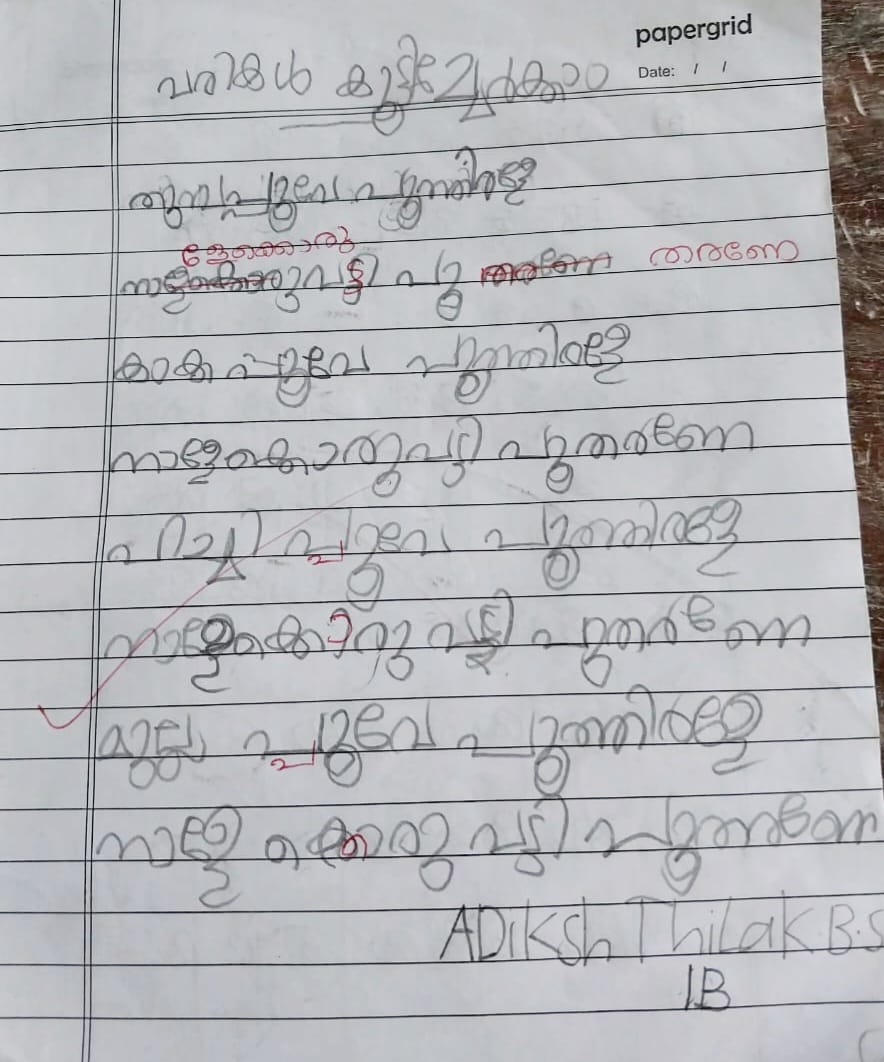 papergrid
Date: / /
വരികൾ കൂട്ടിച്ചേർക്കാം
തുമ്പപ്പൂവേ പൂത്തിരളേ
ളേക്കൊരു
നാളേക്കൊരുവട്ടി പൂ തരണേ തരണേ
കാക്കപ്പൂവേ പൂത്തിരളേ
നാളേക്കൊരുവട്ടി പൂതരണേ
പിച്ചിപ്പൂവേ പൂത്തിരളേ
നാളേക്കൊരുവട്ടി പൂതരണേ
മുല്ലപ്പൂവേ പൂത്തിരളേ
നാളേക്കൊരുവട്ടി പൂതരണേ
ADIKSh ThilaK.B.S
1B